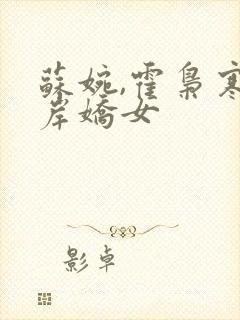 蘇婉,霍梟寒
岸嬌女
影卓